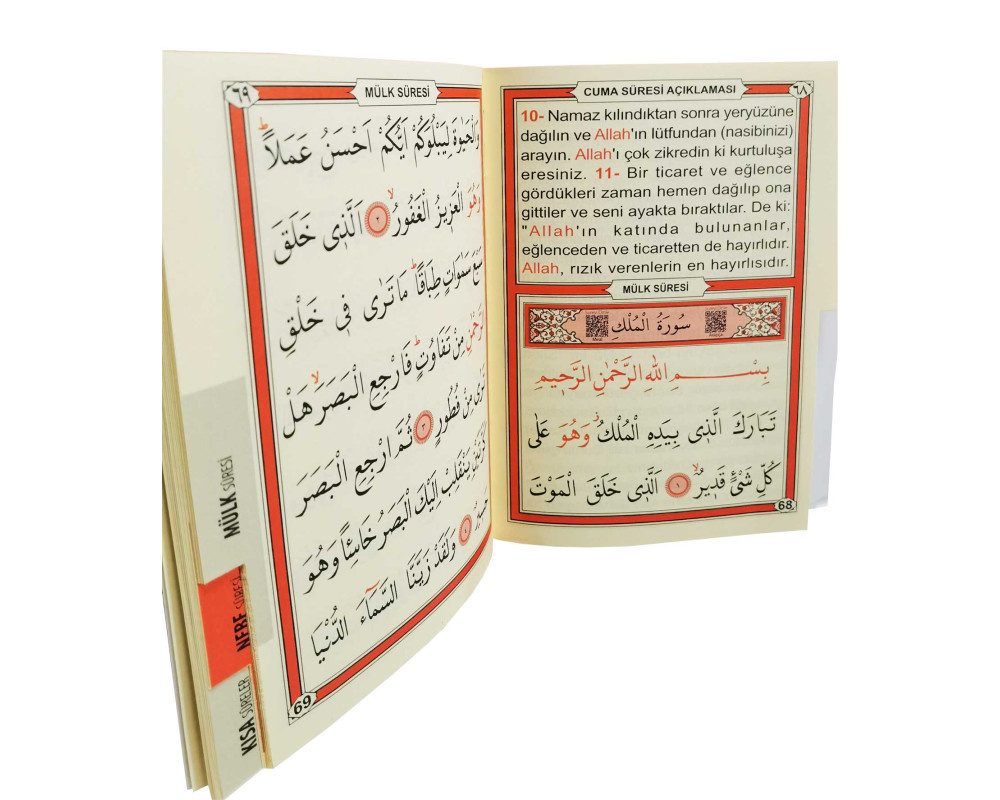 CUMA SÛRESİ AÇIKLAMASI
٦٨
10- Namaz kılındıktan sonra yeryüzüne
dağılın ve Allah'ın lütfundan (nasibinizi)
arayın. Allah'ı çok zikredin ki kurtuluşa
eresiniz. 11- Bir ticaret ve eğlence
gördükleri zaman hemen dağılıp ona
gittiler ve seni ayakta bıraktılar. De ki:
"Allah'ın katında bulunanlar,
eğlenceden ve ticaretten de hayırlıdır.
Allah, rızık verenlerin en hayırlısıdır.
MÜLK SÛRESİ
سُورَةُ الْمُلْكِ
بِسْــــــمِ اللهِ الرَّحْمٰنِ الرَّحٖيمِ
تَبَارَكَ الَّذٖى بِيَدِهِ الْمُلْكُ وَهُوَ عَلٰى
كُلِّ شَىْءٍ قَدٖيرٌ ۙ ١ اَلَّذٖى خَلَقَ الْمَوْتَ
68
MÜLK SÛRESİ
٦٩
وَالْحَيٰوةَ لِيَبْلُوَكُمْ اَيُّكُمْ اَحْسَنُ عَمَلًا ط
وَهُوَ الْعَزٖيزُ الْغَفُورُ ۙ ٢ اَلَّذٖى خَلَقَ
سَبْعَ سَمٰوَاتٍ طِبَاقًا ط مَا تَرٰى فٖى خَلْقِ
الرَّحْمٰنِ مِنْ تَفَاوُتٍ ط فَارْجِعِ الْبَصَرَ ۙ هَلْ
تَرٰى مِنْ فُطُورٍ ٣ ثُمَّ ارْجِعِ الْبَصَرَ
كَرَّتَيْنِ يَنْقَلِبْ اِلَيْكَ الْبَصَرُ خَاسِئًا وَهُوَ
حَسٖيرٌ ٤ وَلَقَدْ زَيَّنَّا السَّمَاءَ الدُّنْيَا
69
MÜLK SÛRESİ
NEBE SÛRESİ
KISA SÛRELER